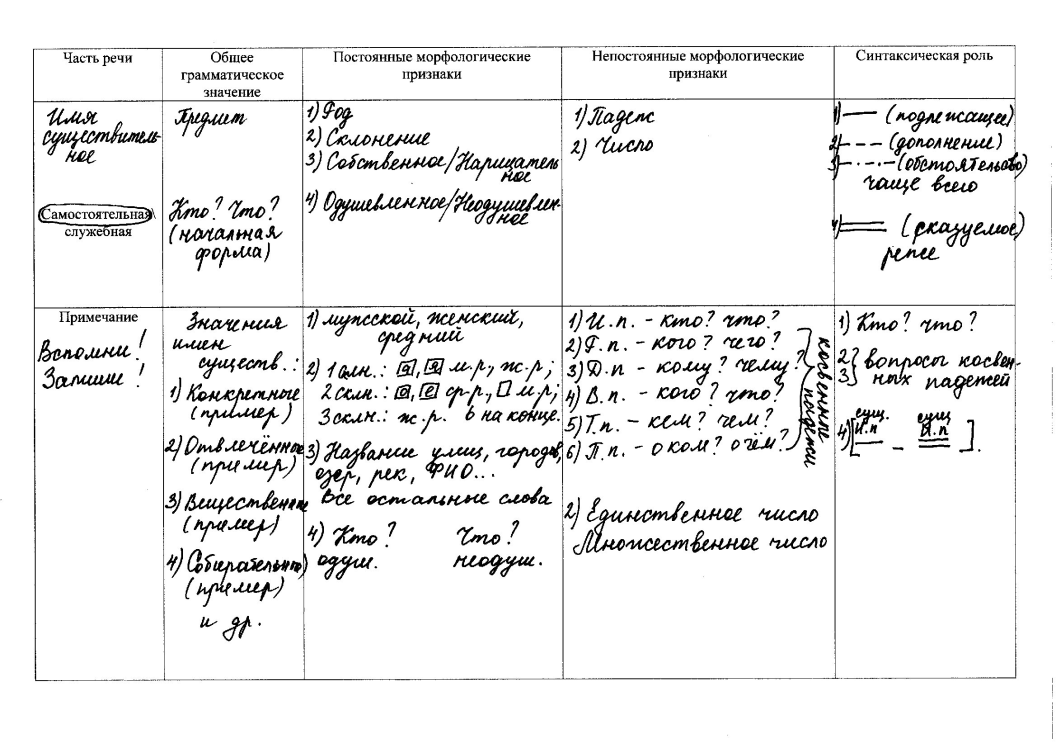 Часть речи
Общее
грамматическое
значение
Постоянные морфологические
признаки
Непостоянные морфологические
признаки
Синтаксическая роль
Имя
существитель-
ное
Самостоятельная\
служебная
Предмет
Кто? Что?
(начальная
форма)
1) Род
2) Склонение
3) Собственное/Нарицатель
ное
4) Одушевленное/Неодушевлен-
ное
1) Падеж
2) Число
1) — (подлежащее)
2) - - - (дополнение)
3) - · - · - (обстоятельство)
чаще всего
4) = (сказуемое)
реже
Примечание
Вспомни!
Запиши!
Значения
имен
существ.:
1) Конкретные
(пример)
2) Отвлечённые
(пример)
3) Вещественные
(пример)
4) Собирательные
(пример)
и др.
1) мужской, женский,
средний
2) 1 скл.: а, я м.р, ж.р;
2 скл.: о, е ср-р, □ м.р;
3 скл: ж.р. ь на конце.
3) Название улиц, городов,
озер, рек, ФИО...
Все остальные слова
4) Кто? Что?
одуш. неодуш.
1) И.п. - кто? что?
2) Р.п. - кого? чего?
3) Д.п - кому? чему?
4) В.п. - кого? что?
5) Т.п. - кем? чем?
6) П.п. - о ком? о чём?
косвенные
падежи
2) Единственное число
Множественное число
1) Кто? что?
2 } вопросы косвен-
3 } ных падежей
сущ. сущ
4) [И.п - И.п ].